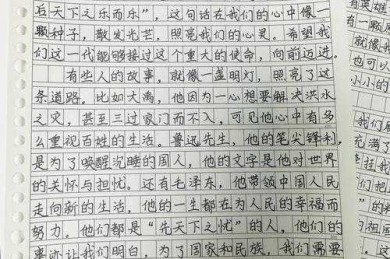 后天下之乐而乐”，这句话在我们的心中像
一颗种子，散发光芒，照亮我们的心灵。希望我
们这一代能够接过这个重大的使命，向前迈进。
有些人的故事，就像一盏明灯，照亮了这
条道路。比如大禹，他因为一心想要解决洪水
之灾，甚至三过家门而不入，可见他心中有多
么重视百姓的生活。鲁迅先生，他的笔尖锋利，
是为了唤醒沉睡的国人，他的文字是他对世界
的关怀与担忧。还有毛泽东，他带领中国人民
走向新的生活，他的一生都在为人民的幸福而
努力。他们都是“先天下之忧”的人，他们的
事迹让我们明白，为了国家和民族，我们需要
有英雄
小小的
我们
充满了